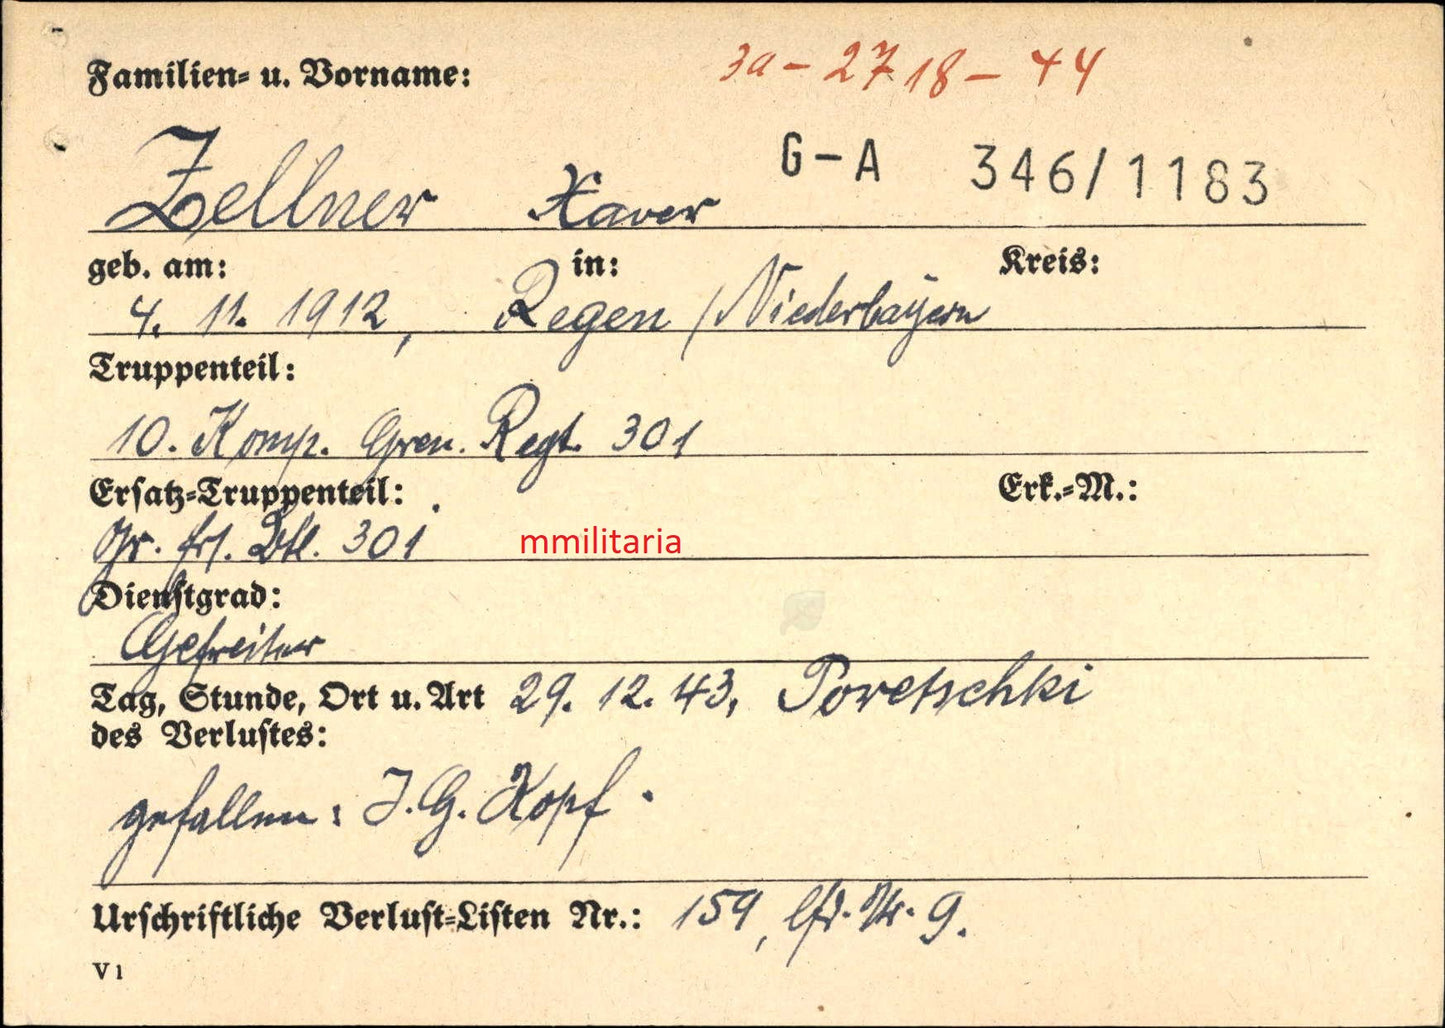 3a - 27 18 - 44
Familien- u. Vorname:
G-A 346/1183
Zellner Xaver
geb. am: in: Kreis:
4. 11. 1912, Regen / Niederbayern
Truppenteil:
10. Komp. Gren. Regt. 301
Ersatz-Truppenteil: Erk.-M.:
Gr. Ers. Btl. 301
mmilitaria
Dienstgrad:
Gefreiter
Tag, Stunde, Ort u. Art 29. 12. 43, Poretschki
des Verlustes:
gefallen: I.G. Kopf.
Urschriftliche Verlust-Listen Nr.: 159, lfd. Nr. 9.
V 1